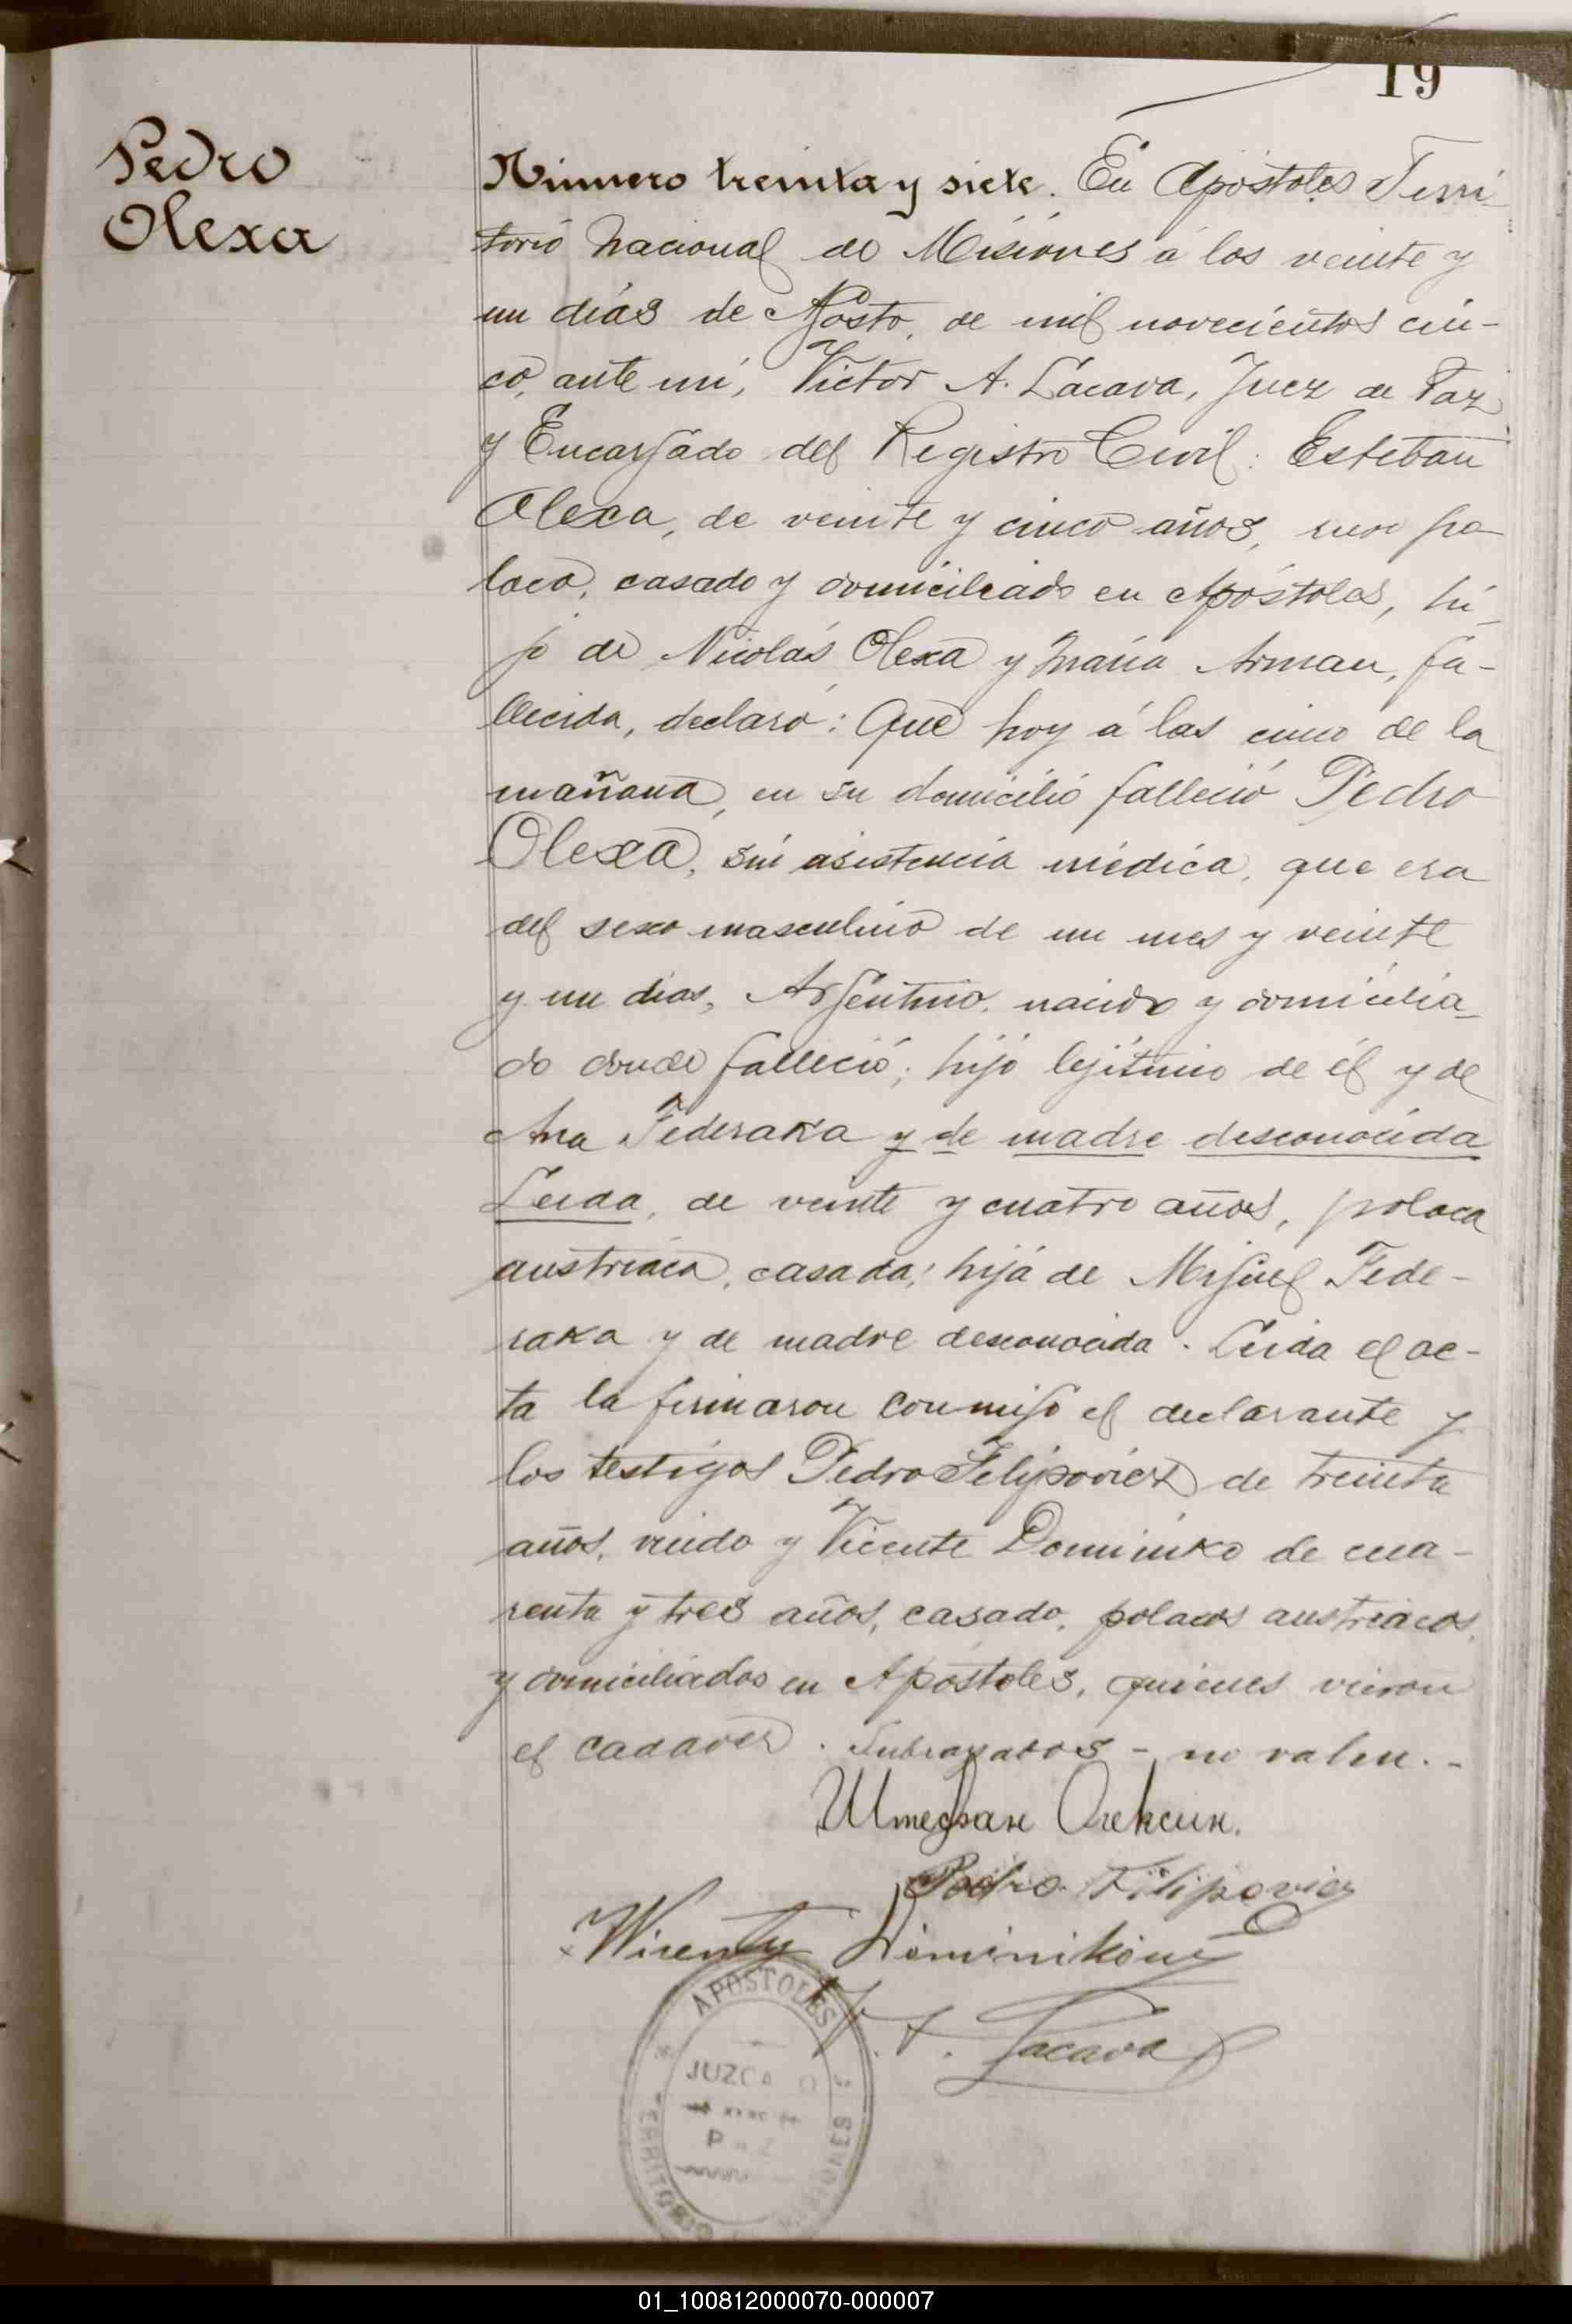 19
Pedro
Olexa
Número treinta y siete. En Apóstoles Terri-
torio Nacional de Misiones á los veinte y
un días de Agosto, de mil novecientos cin-
co, ante mí, Víctor A. Lacava, Juez de Paz
y Encargado del Registro Civil: Esteban
Olexa, de veinte y cinco años, ruso po-
laco, casado y domiciliado en Apóstoles, hi-
jo de Nicolás Olexa y María Arman, fa-
llecida, declaró: Que hoy á las cinco de la
mañana, en su domicilio falleció Pedro
Olexa, sin asistencia médica, que era
del sexo masculino de un mes y veinte
y un días, Argentino, nacido y domicilia-
do donde falleció; hijo lejítimo de él y de
Ana Federaka y de madre desconocida
Leida, de veinte y cuatro años, polaca
austriaca, casada; hija de Miguel Fede-
raka y de madre desconocida. Leida el ac-
ta la firmaron conmigo el declarante y
los testigos Pedro Felipovicz de treinta
años, viudo y Vicente Dominiko de cua-
renta y tres años, casado, polacos austriacos,
y domiciliados en Apóstoles, quienes vieron
el cadaver. Subrayados - no valen. -
Pedro Filipovicz
Wicenty
V. A. Lacava
APOSTOLES
JUZGADO
PAZ
TERRITORIO
MISIONES
01_100812000070-000007